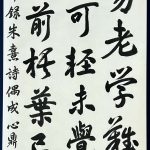 易老学難
可輕未覺
前梧葉已
錄朱熹詩偶成心鼎